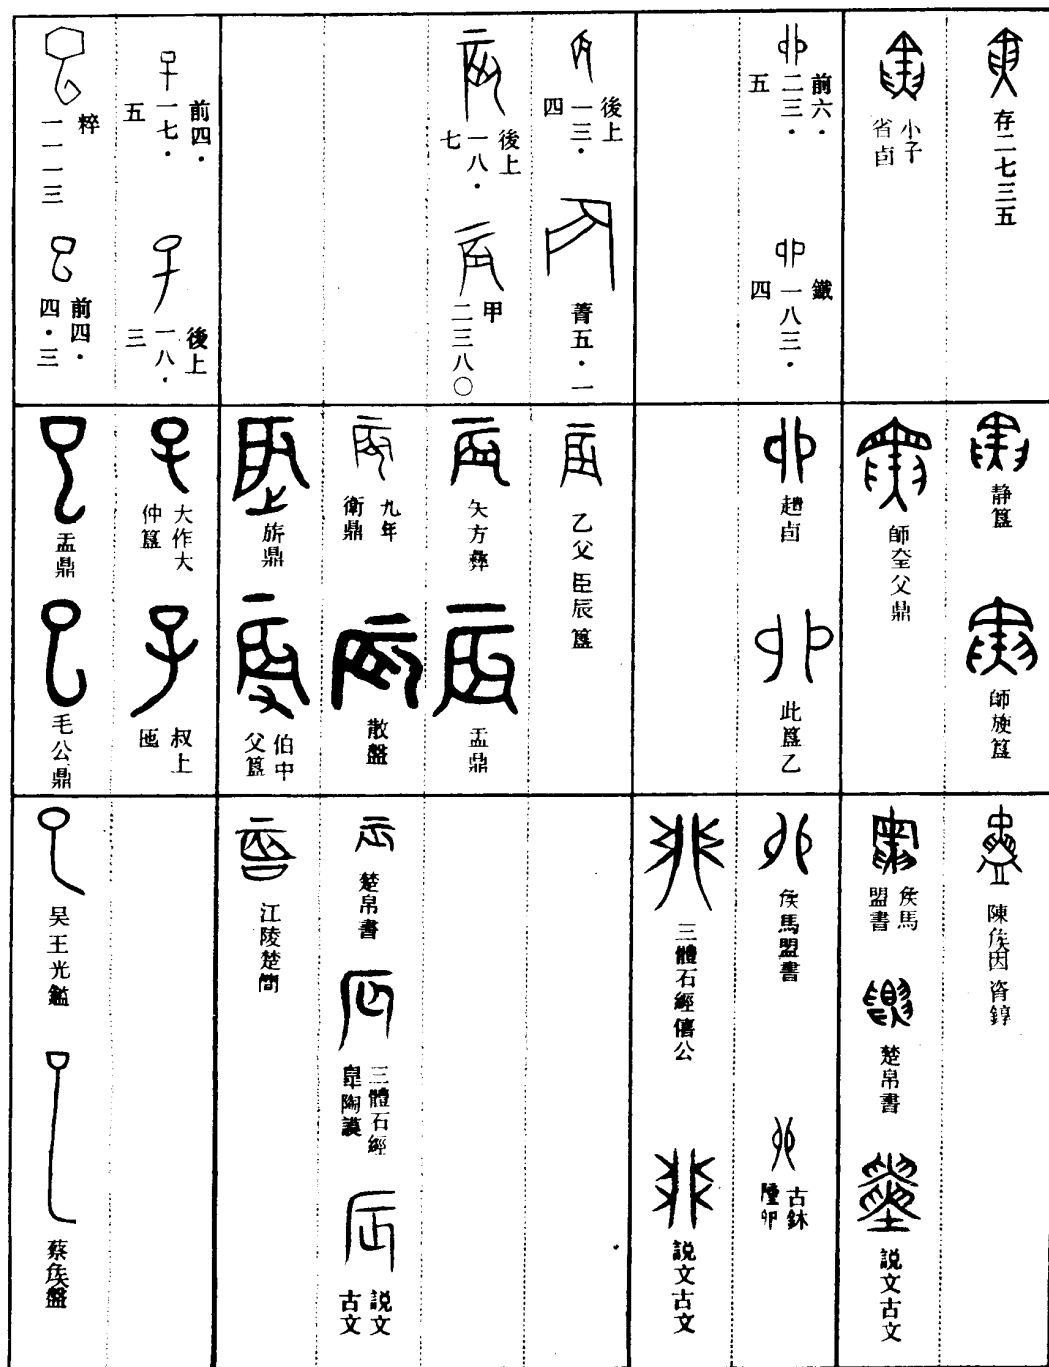 存二七三五
小子
省卣
前六·
二三·
五
鐵
一八三·
四
後上
一三·
四
菁五·一
後上
一八·
七
甲
二三八〇
前四·
一七·
五
後上
一八·
三
粹
一一一三
前四·
四·三
静簋
師旋簋
師奎父鼎
趞卣
此簋乙
乙父臣辰簋
夨方彝
盂鼎
九年
衛鼎
散盤
旂鼎
伯中
父簋
大作大
仲簋
叔上
匜
盂鼎
毛公鼎
陳侯因資錞
侯馬
盟書
楚帛書
説文古文
侯馬盟書
古鉥
陸卯
三體石經僖公
説文古文
楚帛書
三體石經
皋陶謨
説文
古文
江陵楚簡
吴王光鑑
蔡侯盤